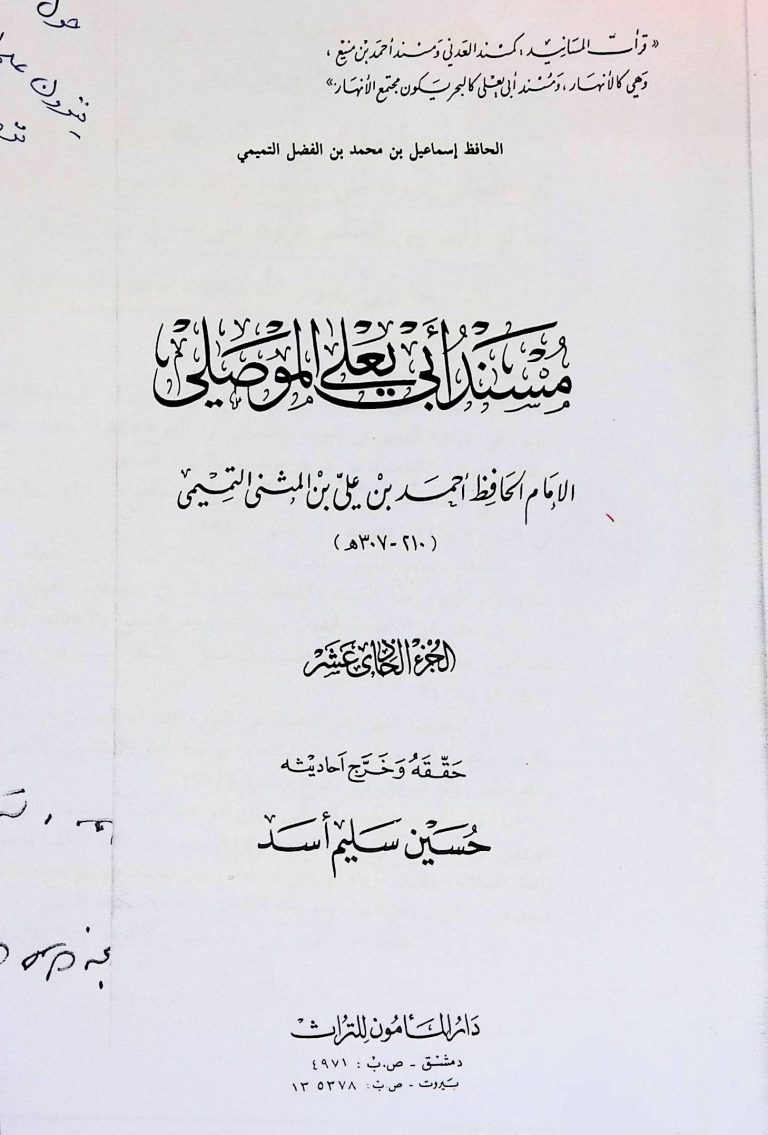 «قرأت المسانيد: كمسند العدني ومسند أحمد بن منيع،
وهي كالأنهار، ومسند أبي يعلى كالبحر يكون مجتمع الأنهار.»
الحافظ إسماعيل بن محمد بن الفضل التميمي
مُسْنَدُ أَبِي يَعْلَى المَوْصَلِيِّ
الإمَام الحَافِظ أحمد بنْ عَليّ بنْ المثنى التميمِي
(٢١٠ - ٣٠٧هـ)
الجُزءُ الحَادِي عَشَر
حَقّقَهُ وَخَرَّج أحَاديثه
حُسَين سَليم أسَد
دَار المَأمُون للتُراث
دمشق - ص.ب: ٤٩٧١
بيروت - ص.ب: ٥٣٧٨ ١٣
حول